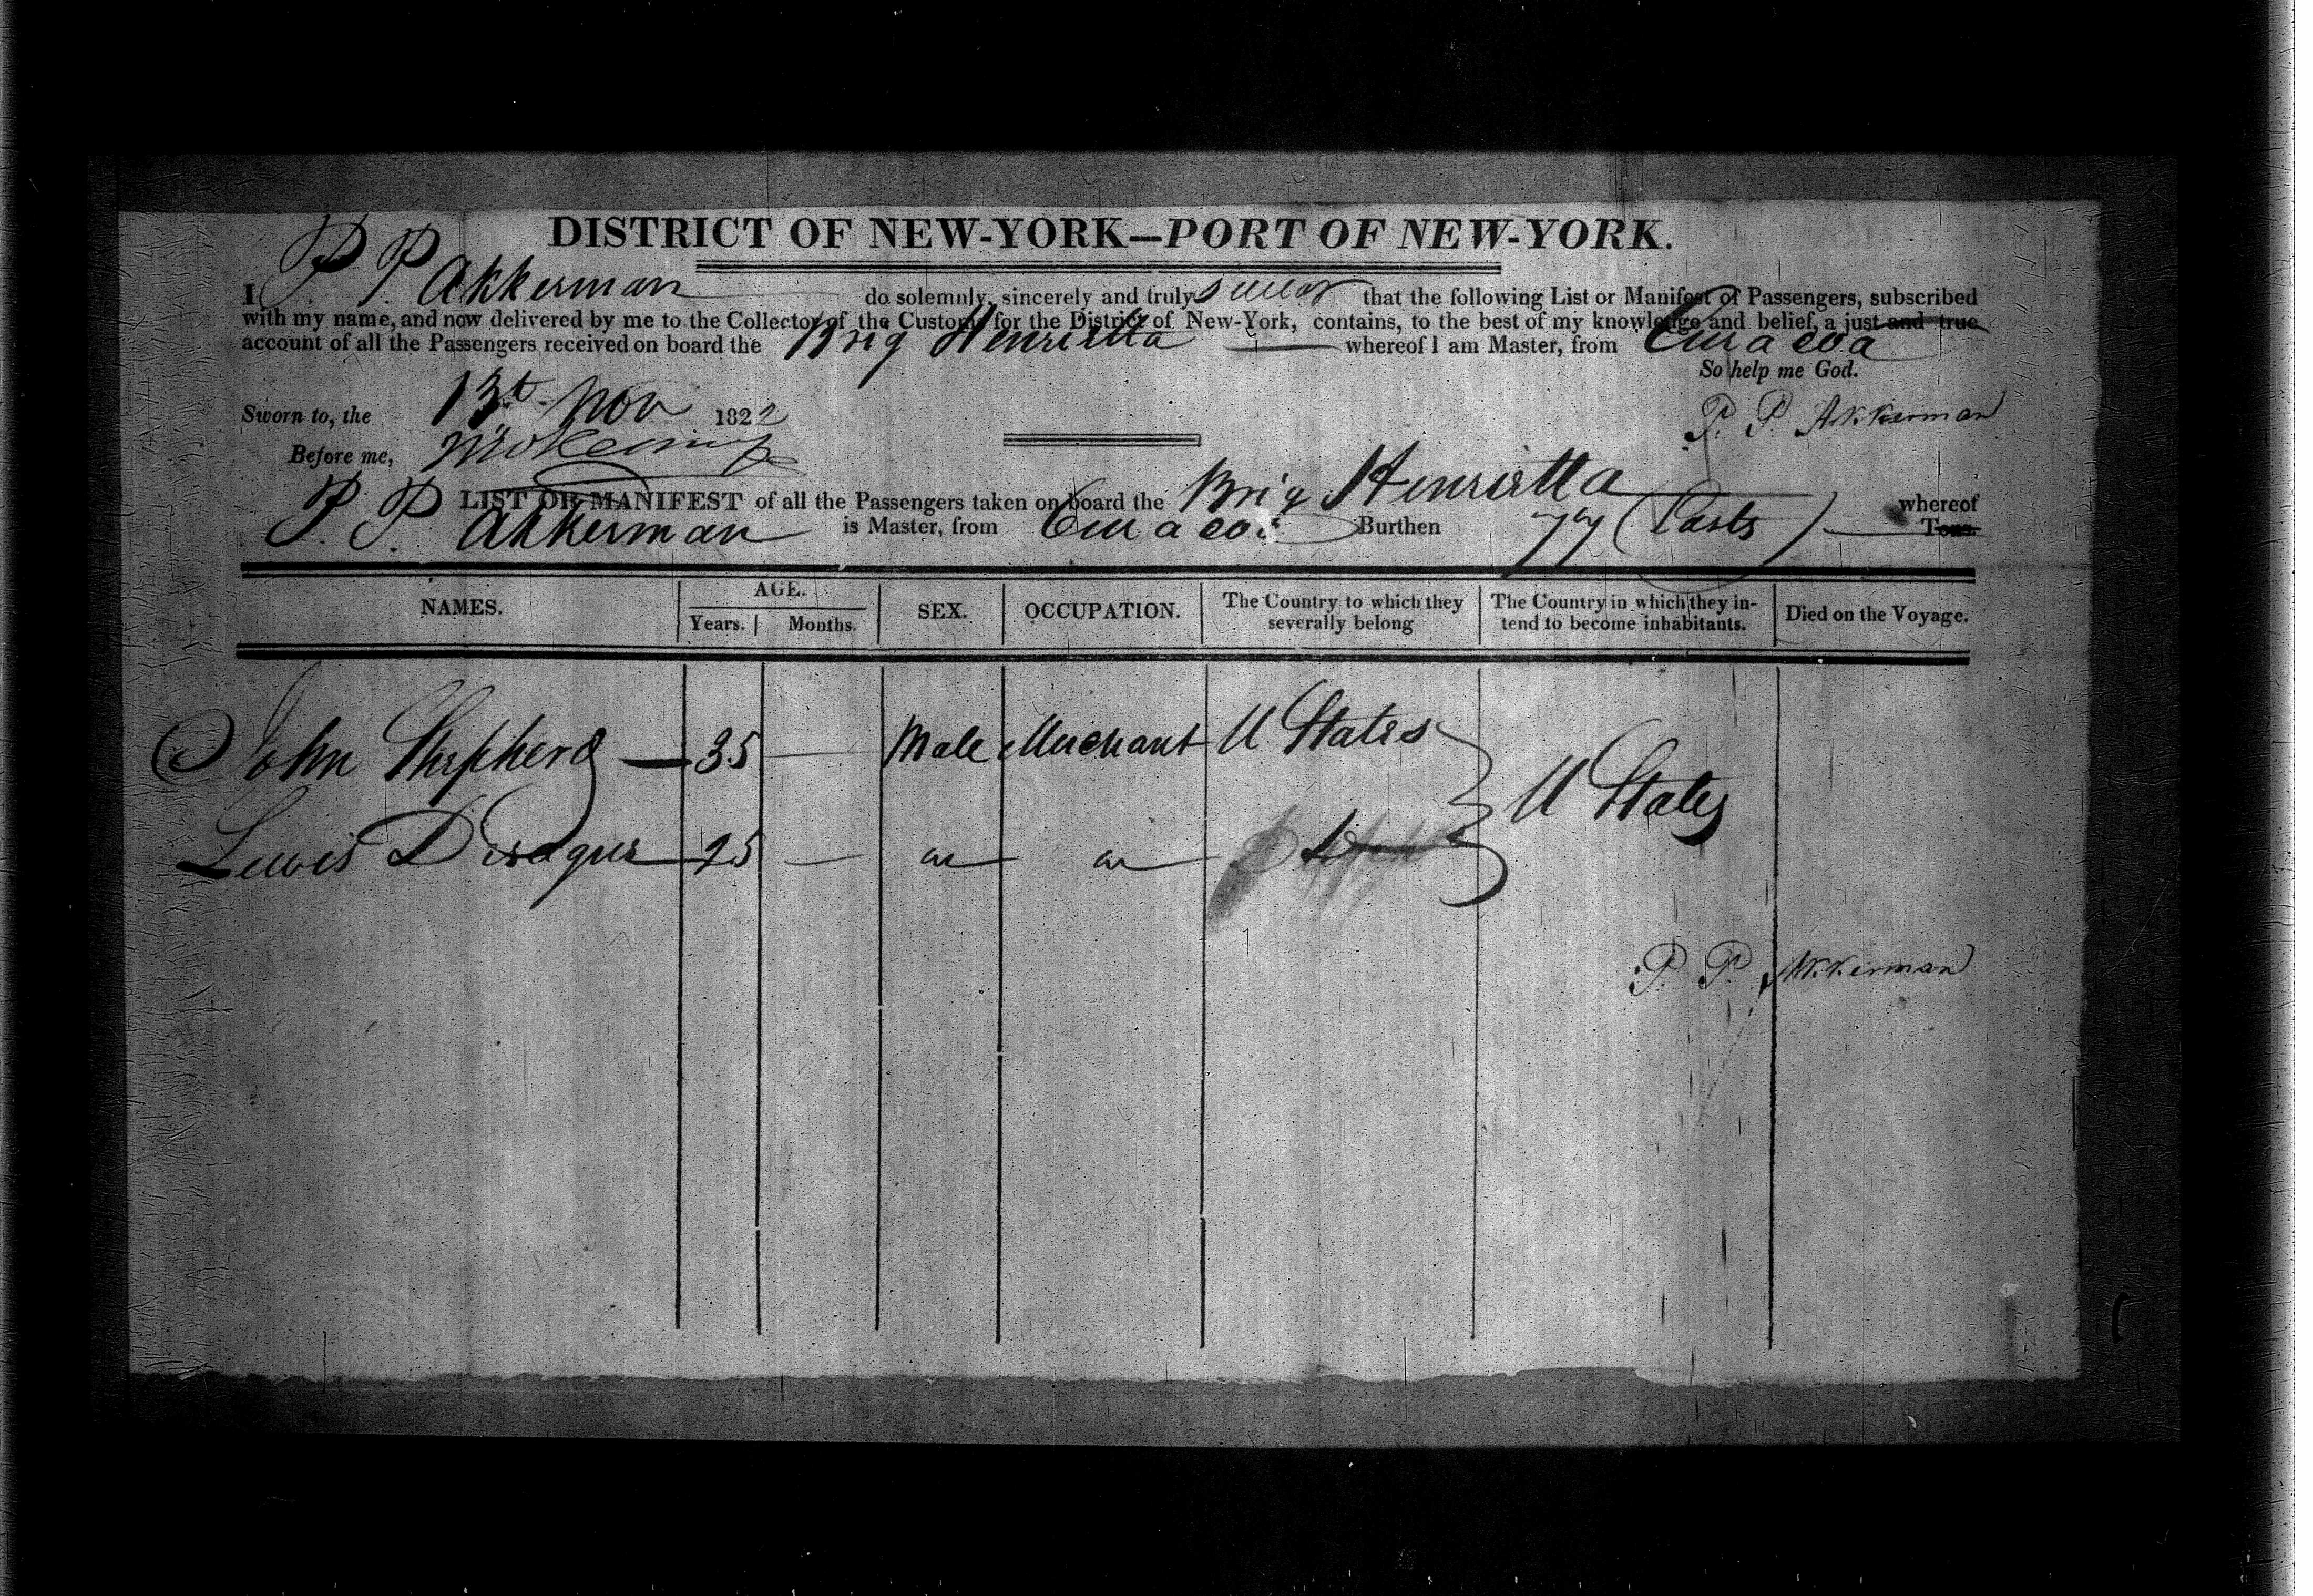 DISTRICT OF NEW-YORK—PORT OF NEW-YORK.
I P. P. Akkerman do solemnly, sincerely and truly swear that the following List or Manifest of Passengers, subscribed
with my name, and now delivered by me to the Collector of the Customs for the District of New-York, contains, to the best of my knowledge and belief, a just and true
account of all the Passengers received on board the Brig Henrietta whereof I am Master, from Curacoa
So help me God.
Sworn to, the 13t Nov 1822
P. P. Akkerman
Before me,
LIST OR MANIFEST of all the Passengers taken on board the Brig Henrietta whereof
P. P. Akkerman is Master, from Curacoa Burthen 77 (Lasts) Tons.
NAMES. AGE. SEX. OCCUPATION. The Country to which they severally belong The Country in which they intend to become inhabitants. Died on the Voyage.
Years. Months.
John Shepherd 35 — Male Merchant U States
U States
Lewis 25 —
P. P. Akkerman